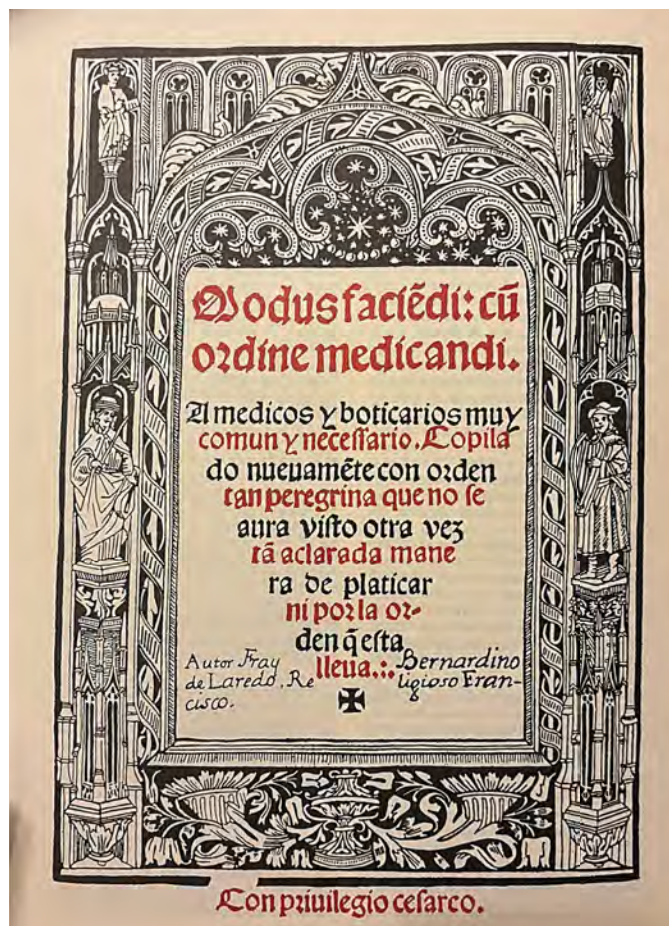 Modus faciẽdi: cũ
ordine medicandi.
A medicos y boticarios muy
comun y necessario. Copila
do nueuamẽte con orden
tan peregrina que no se
aura visto otra vez
tã aclarada mane
ra de platicar
ni por la or-
den q̃ esta
lleua.:.
Autor Fray Bernardino
de Laredo, Religioso Fran-
cisco.
Con priuilegio cesareo.